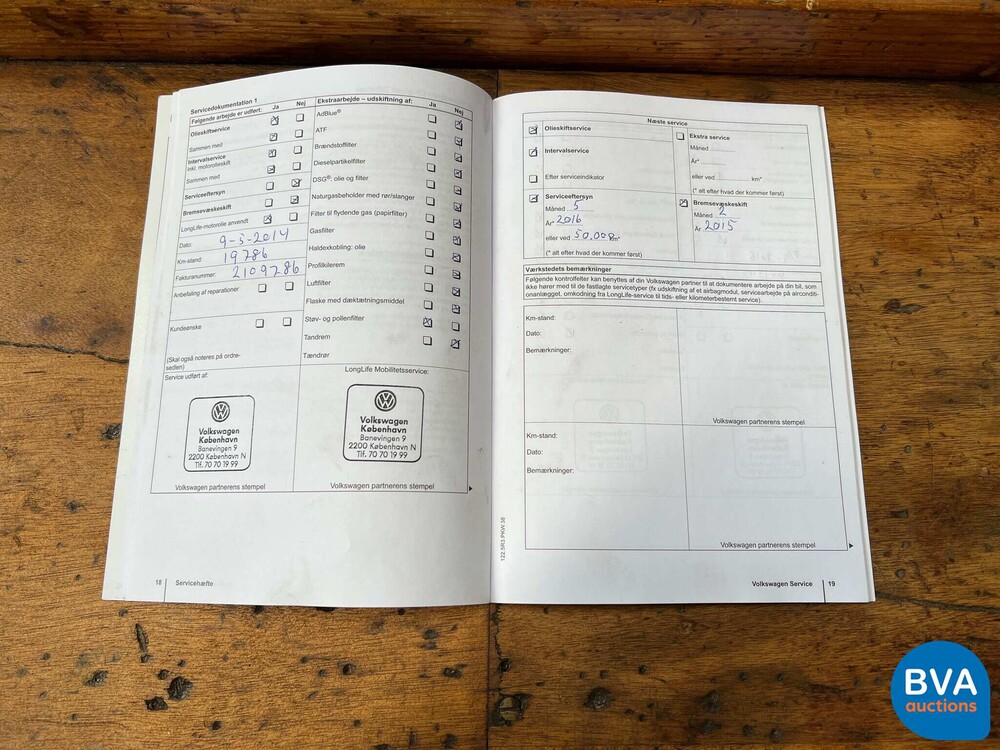 Servicedokumentation 1
Følgende arbejde er udført: Ja Nej
Olieskiftservice
Sammen med
Intervalservice
inkl. motorolieskift
Sammen med
Serviceeftersyn
Bremsevæskeskift
LongLife-motorolie anvendt
Dato: 9-5-2014
Km-stand: 19786
Fakturanummer: 2109786
Anbefaling af reparationer
Kundeønske
(Skal også noteres på ordre-
sedlen)
Ekstraarbejde – udskiftning af: Ja Nej
AdBlue®
ATF
Brændstoffilter
Dieselpartikelfilter
DSG®: olie og filter
Naturgasbeholder med rør/slanger
Filter til flydende gas (papirfilter)
Gasfilter
Haldexkobling: olie
Profilkilerem
Luftfilter
Flaske med dæktætningsmiddel
Støv- og pollenfilter
Tandrem
Tændrør
Service udført af:
LongLife Mobilitetsservice:
Volkswagen
København
Banevingen 9
2200 København N
Tlf. 70 70 19 99
Volkswagen
København
Banevingen 9
2200 København N
Tlf. 70 70 19 99
Volkswagen partnerens stempel
Volkswagen partnerens stempel
18 Servicehæfte
Næste service
Olieskiftservice
Intervalservice
Efter serviceindikator
Ekstra service
Måned
År*
eller ved km*
(* alt efter hvad der kommer først)
Serviceeftersyn
Måned 5
År* 2016
eller ved 50.000 km*
(* alt efter hvad der kommer først)
Bremsevæskeskift
Måned 2
År 2015
Værkstedets bemærkninger
Følgende kontrolfelter kan benyttes af din Volkswagen partner til at dokumentere arbejde på din bil, som
ikke hører med til de fastlagte servicetyper (fx udskiftning af et airbagmodul, servicearbejde på airconditi-
onanlægget, omkodning fra LongLife-service til tids- eller kilometerbestemt service).
Km-stand:
Dato:
Bemærkninger:
Volkswagen partnerens stempel
Km-stand:
Dato:
Bemærkninger:
Volkswagen partnerens stempel
122.5R3.PKW.38
Volkswagen Service 19
BVA
auctions